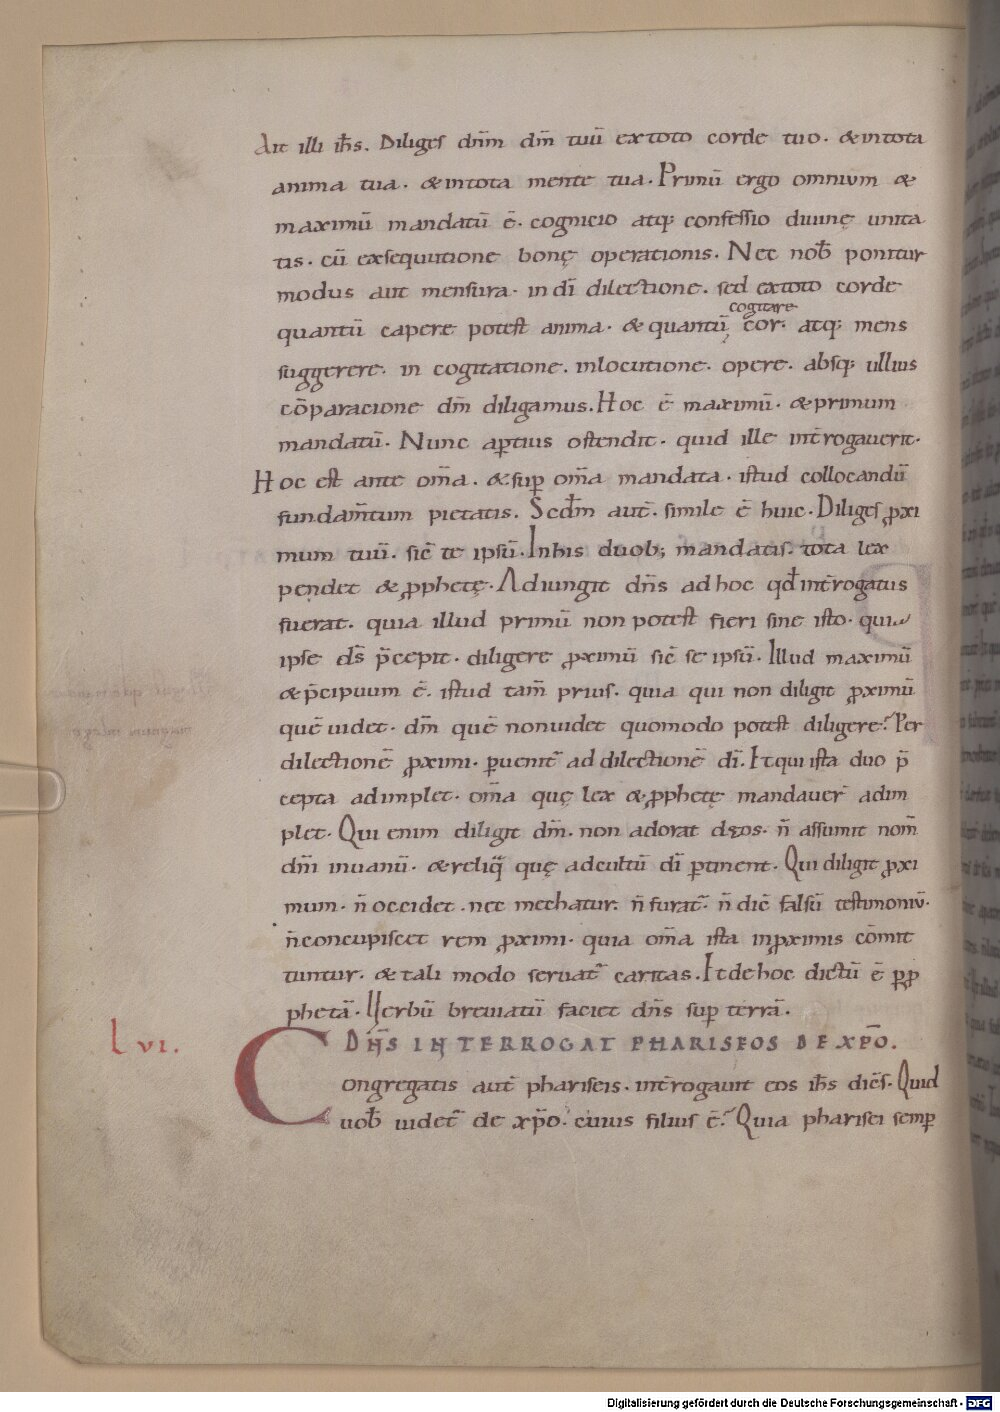 Ait illi ih̅s. Diliges dn̅m dm̅ tuū ex toto corde tuo. & in tota
anima tua. & in tota mente tua. Primū ergo omnium &
maximū mandatū ē. cognicio atq; confessio diuinę unita
tis. cū exsequutione bonę operationis. Nec nob̅ ponitur
modus aut mensura. in dī dilectione. sed ex toto corde
cogitare
quantū capere potest anima. & quantū cor. atq; mens
suggerere. in cogitatione. in locutione. opere. absq; ullius
cōparacione dm̅ diligamus. Hoc ē maximū. & primum
mandatū. Nunc aptius ostendit. quid ille int̅rogauerit.
Hoc est ante om̅a. & sup̱ om̅a mandata. istud collocandū
fundam̅tum pietatis. Scd̅m aut̅. simile ē huic. Diliges ꝓxi
mum tuū. sic̅ te ipsū. In his duob; mandatis. tota lex
pendet & ꝓphetę. Adiungit dn̅s ad hoc qd̅ int̅rogatus
fuerat. quia illud primū non potest fieri sine isto. quia
ipse ds̅ p̅cepit. diligere ꝓximū sic̅ se ipsū. Illud maximū
& p̅cipuum ē. istud tam̅ prius. quia qui non diligit ꝓximū
quē uidet. dm̅ quē non uidet quomodo potest diligere? Per
dilectionē ꝓximi. ꝑuenit᷑ ad dilectionē dī. Et qui ista duo p̅
cepta adimplet. om̅a quę lex & ꝓphetę mandauer̅ adim
plet. Qui enim diligit dm̅. non adorat deos. n̅ assumit nom̅
dm̅ in uanū. & reliq̅ quę ad cultū dī ꝑtinent. Qui diligit ꝓxi
mum. n̅ occidet. nec mechatur. n̅ furat᷑. n̅ dic̅ falsū testimoniū.
n̅ concupiscet rem ꝓximi. quia om̅a ista in ꝓximis cōmit
tuntur. & tali modo seruat᷑ caritas. Et de hoc dictū ē ꝑ ꝓ
phetā. Uerbū breuiatū faciet dn̅s sup̱ terrā.
Lvi. DN̅S INTERROGAT PHARISEOS DE XP̅O.
Congregatis aut̅ phariseis. int̅rogauit eos ih̅s dic̅s. Quid
uob̅ uidet᷑ de xp̅o. cuius filius ē? Quia pharisei semp̱
Digitalisierung gefördert durch die Deutsche Forschungsgemeinschaft - DFG